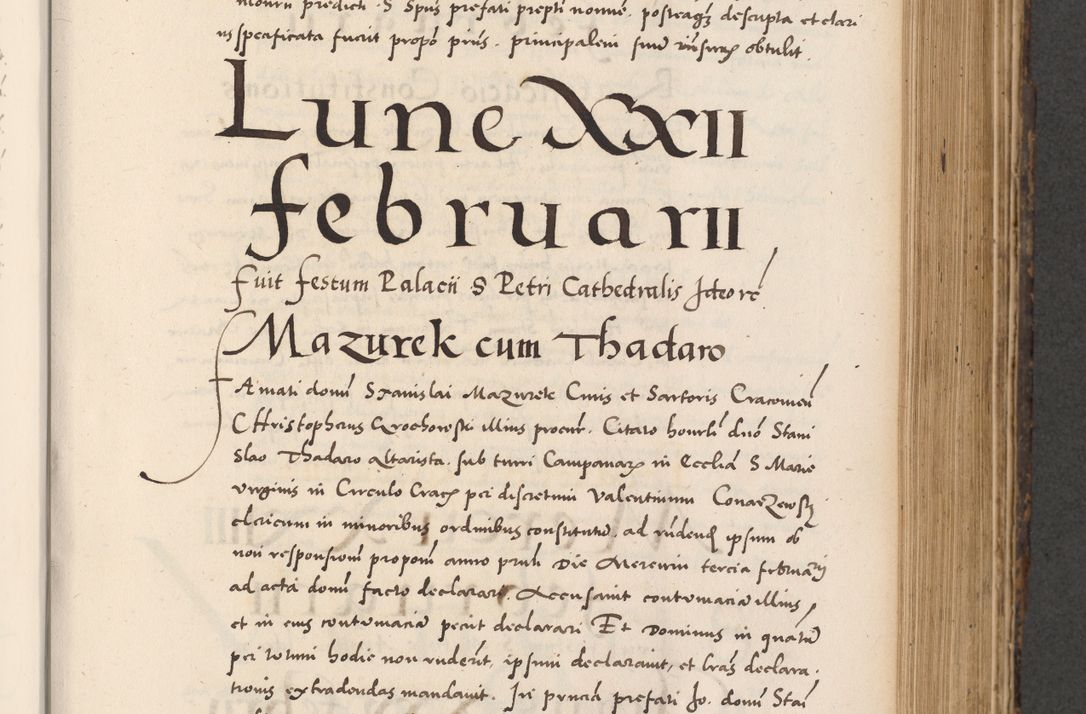 predicti S Spus prefati prepti nomine, posteaq; descripta et clari
us specificata fuerit propo prius, principalem sive obtulit.
Lune XXII
februarii
fuit festum Palacii S Petri Cathedralis Ideo etc
Mazurek cum Thadaro
Famati domi Stanislai Mazurek Civis et Sartoris Cracovien
CHristopherus Grochowski illius procur. Citato honorli dno Stani
slao Thadaro altarista sub turri Campanarz in Ecclia S Marie
virginis in Circulo Crac per discretum Valentinum Conarzewsky
clericum in minoribus ordinibus constitutu, ad ipsum ob
non responsiom propom anno prnti Die Mercurii tercia februarii
ad acta domi facto declarari. Accusavit contumacia illius
et in eius contumacia peciit declarari Et Dominus in quatu
per totum hodie non , ipsum declaravit, et lras declara
tionis extradendas mandavit. In prncia prefati Jo. domi Stai